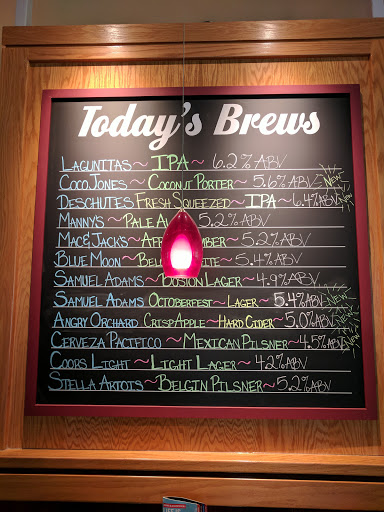 Today's Brews
LAGUNITAS~IPA~ 6.2% ABV
COCO JONES~COCONUT PORTER~ 5.6% ABV NEW
DESCHUTES FRESH SQUEEZED~IPA~6.4% ABV NEW
MANNY'S~PALE 5.2% ABV
MAC&JACK'S~ 5.2% ABV
BLUE MOON~ 5.4% ABV
SAMUEL ADAMS~BOSTON LAGER~4.9% ABV
SAMUEL ADAMS OCTOBERFEST~LAGER~5.4% ABV NEW
ANGRY ORCHARD CRISP APPLE~HARD CIDER~5.0% ABV NEW
CERVEZA PACIFICO~MEXICAN PILSNER~4.5% ABV NEW
COORS LIGHT~LIGHT LAGER~ 4.2% ABV
STELLA ARTOIS~BELGIN PILSNER~5.2% ABV